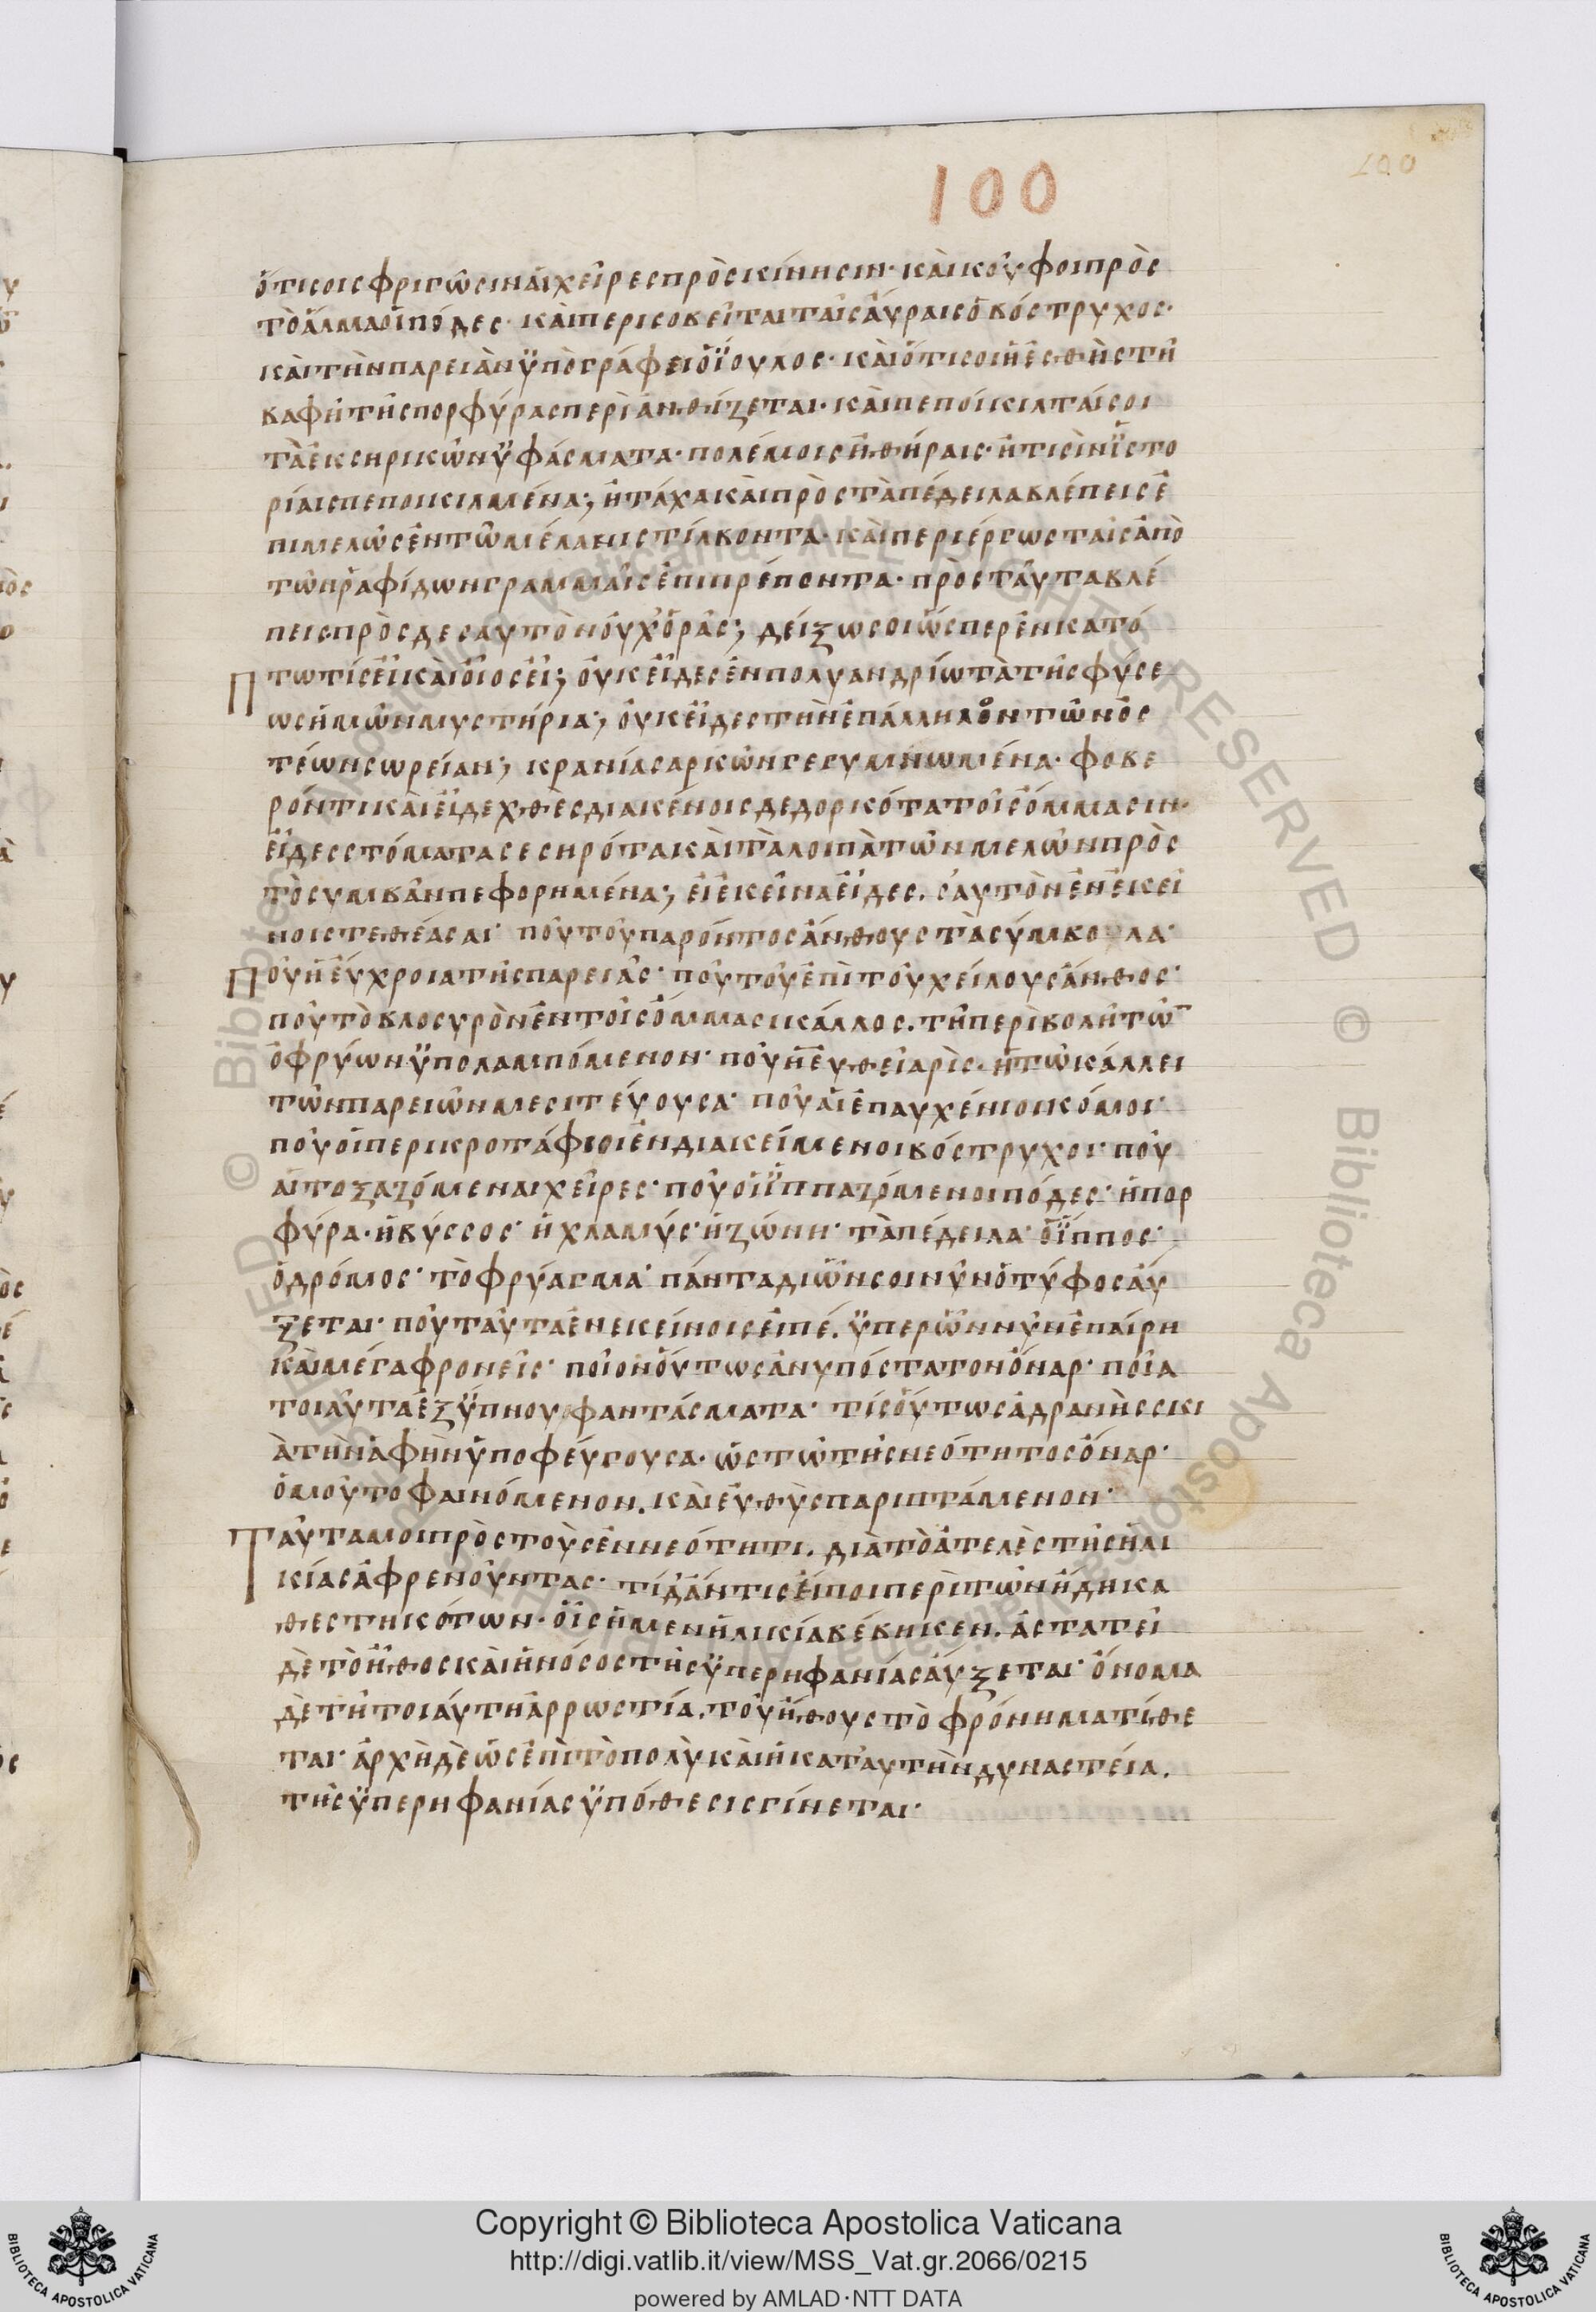 100
100
ὅτι σοι σφριγῶσιν ἁι χεῖρες πρὸς κίνησιν· κὰι κοῦφοι πρὸς
τὸ ἅλμα ὁι πόδες· κὰι περισοβεῖται ταῖς ἄυραις ὁ βόστρυχος·
κὰι τὴν παρειὰν ὑπογράφει ὁ ἴουλος· κὰι ὅτι σοι ἡ ἐσθὴς τῆ
βαφῆ τῆς πορφύρας περιανθίζεται· κὰι πεποίκιλταί σοι
τὰ ἐκ σηρικῶν ὑφάσματα· πολέμοις ἢ θήραις· ἤ τισιν ἱστο
ρίαις πεποικιλμένα; ἢ τάχα κὰι πρὸς τὰ πέδειλα βλέπεις ἐ
πιμελῶς ἐν τῶ μέλανι στίλβοντα· κὰι περιέργως ταῖς ἀπὸ
τῶν ῥαφίδων γραμμαῖς ἐπιπρέποντα· πρὸς ταῦτα βλέ
πεις· πρὸς δε σαυτὸν ὀυχ ὁρᾶς; δείξω σοι ὥσπερ ἐν κατό
πτω τίς ἐῖ κὰι ὁῖος ἐῖ; ὀυκ ἐῖδες ἐν πολυανδρίω τὰ τῆς φύσε
ως ἡμῶν μυστήρια; ὀυκ ἐῖδες τὴν ἐπάλληλον τῶν ὀσ
τέων σωρείαν; κρανία σαρκῶν γεγυμνωμένα· φοβε
ρόν τι κὰι ἐιδεχθὲς διακένοις δεδορκότα τοῖς ὄμμασιν·
ἐῖδες στόματα σεσηρότα κὰι τὰ λοιπὰ τῶν μελῶν πρὸς
τὸ συμβὰν πεφορημένα; ἐι ἐκεῖνα ἐῖδες. σαυτὸν ἐν ἐκεί
νοις τεθέασαι· ποῦ τοῦ παρόντος ἄνθους τὰ σύμβολα·
Ποῦ ἡ ἔυχροια τῆς παρειᾶς· ποῦ τοῦ ἐπὶ τοῦ χείλους ἄνθος·
ποῦ τὸ βλοσυρὸν ἐν τοῖς ὄμμασι κάλλος. τῆ περιβολῆ τῶ‾
ὀφρύων ὑπολαμπόμενον· ποῦ ἡ ἐυθεῖα ρίς. ἡ τῶ κάλλει
τῶν παρειῶν μεσιτεύουσα· ποῦ ἁι ἐπαυχένιοι κόμοι·
ποῦ ὁι περικροτάφιοι ἐνδιακείμενοι βόστρυχοι· ποῦ
ἁι τοξαζόμεναι χεῖρες· ποῦ ὁι ἱππαζόμενοι πόδες· ἡ πορ
φύρα· ἡ βύσσος· ἡ χλαμύς· ἡ ζώνη· τὰ πέδειλα· ὁ ἵππος·
ὁ δρόμος· τὸ φρύαγμα· πάντα δι ὧν σοι νῦν ὁ τύφος ἄυ
ξεται· ποῦ ταῦτα ἐν εκείνοις ἐιπέ. ὑπερ ὧν νῦν ἐπαίρη
κὰι μέγα φρονεῖς· ποῖον ὄυτως ἀνυπόστατον ὄναρ· ποῖα
τοιαῦτα ἐξ ὕπνου φαντάσματα· τίς ὅυτως ἀδρανὴς σκι
ὰ τὴν ἁφὴν ὑποφέυγουσα· ὡς τὼ τῆς νεότητος ὄναρ·
ὁμοῦ το φαινόμενον. κὰι ἐυθὺς παριπτάμενον·
Ταῦτα μοι πρὸς τοὺς ἐν νεότητι. διὰ τὸ ἀτελὲς τῆς ἡλι
κίας ἀφρενοῦντας· τί δ ἄν τις ἔιποι περὶ τῶν ἤδη κα
θεστηκότων· ὁῖς ἡ μεν ἡλικία βέβηκεν. ἀστατεῖ
δὲ τὸ ἦθος κὰι ἡ νόσος τῆς ὑπερηφανίας ἄυξεται· ὄνομα
δὲ τῆ τοιάυτη ἀρρωστία. τοῦ ἤθους τὸ φρόνημα τίθε
ται· ἀρχὴ δὲ ὡς ἐπὶ τὸ πολὺ κὰι ἡ κατ αυτὴν δυναστεία.
τῆς ὑπερηφανίας ὑπόθεσις γίνεται·
Copyright © Biblioteca Apostolica Vaticana
http://digi.vatlib.it/view/MSS_Vat.gr.2066/0215
powered by AMLAD·NTT DATA